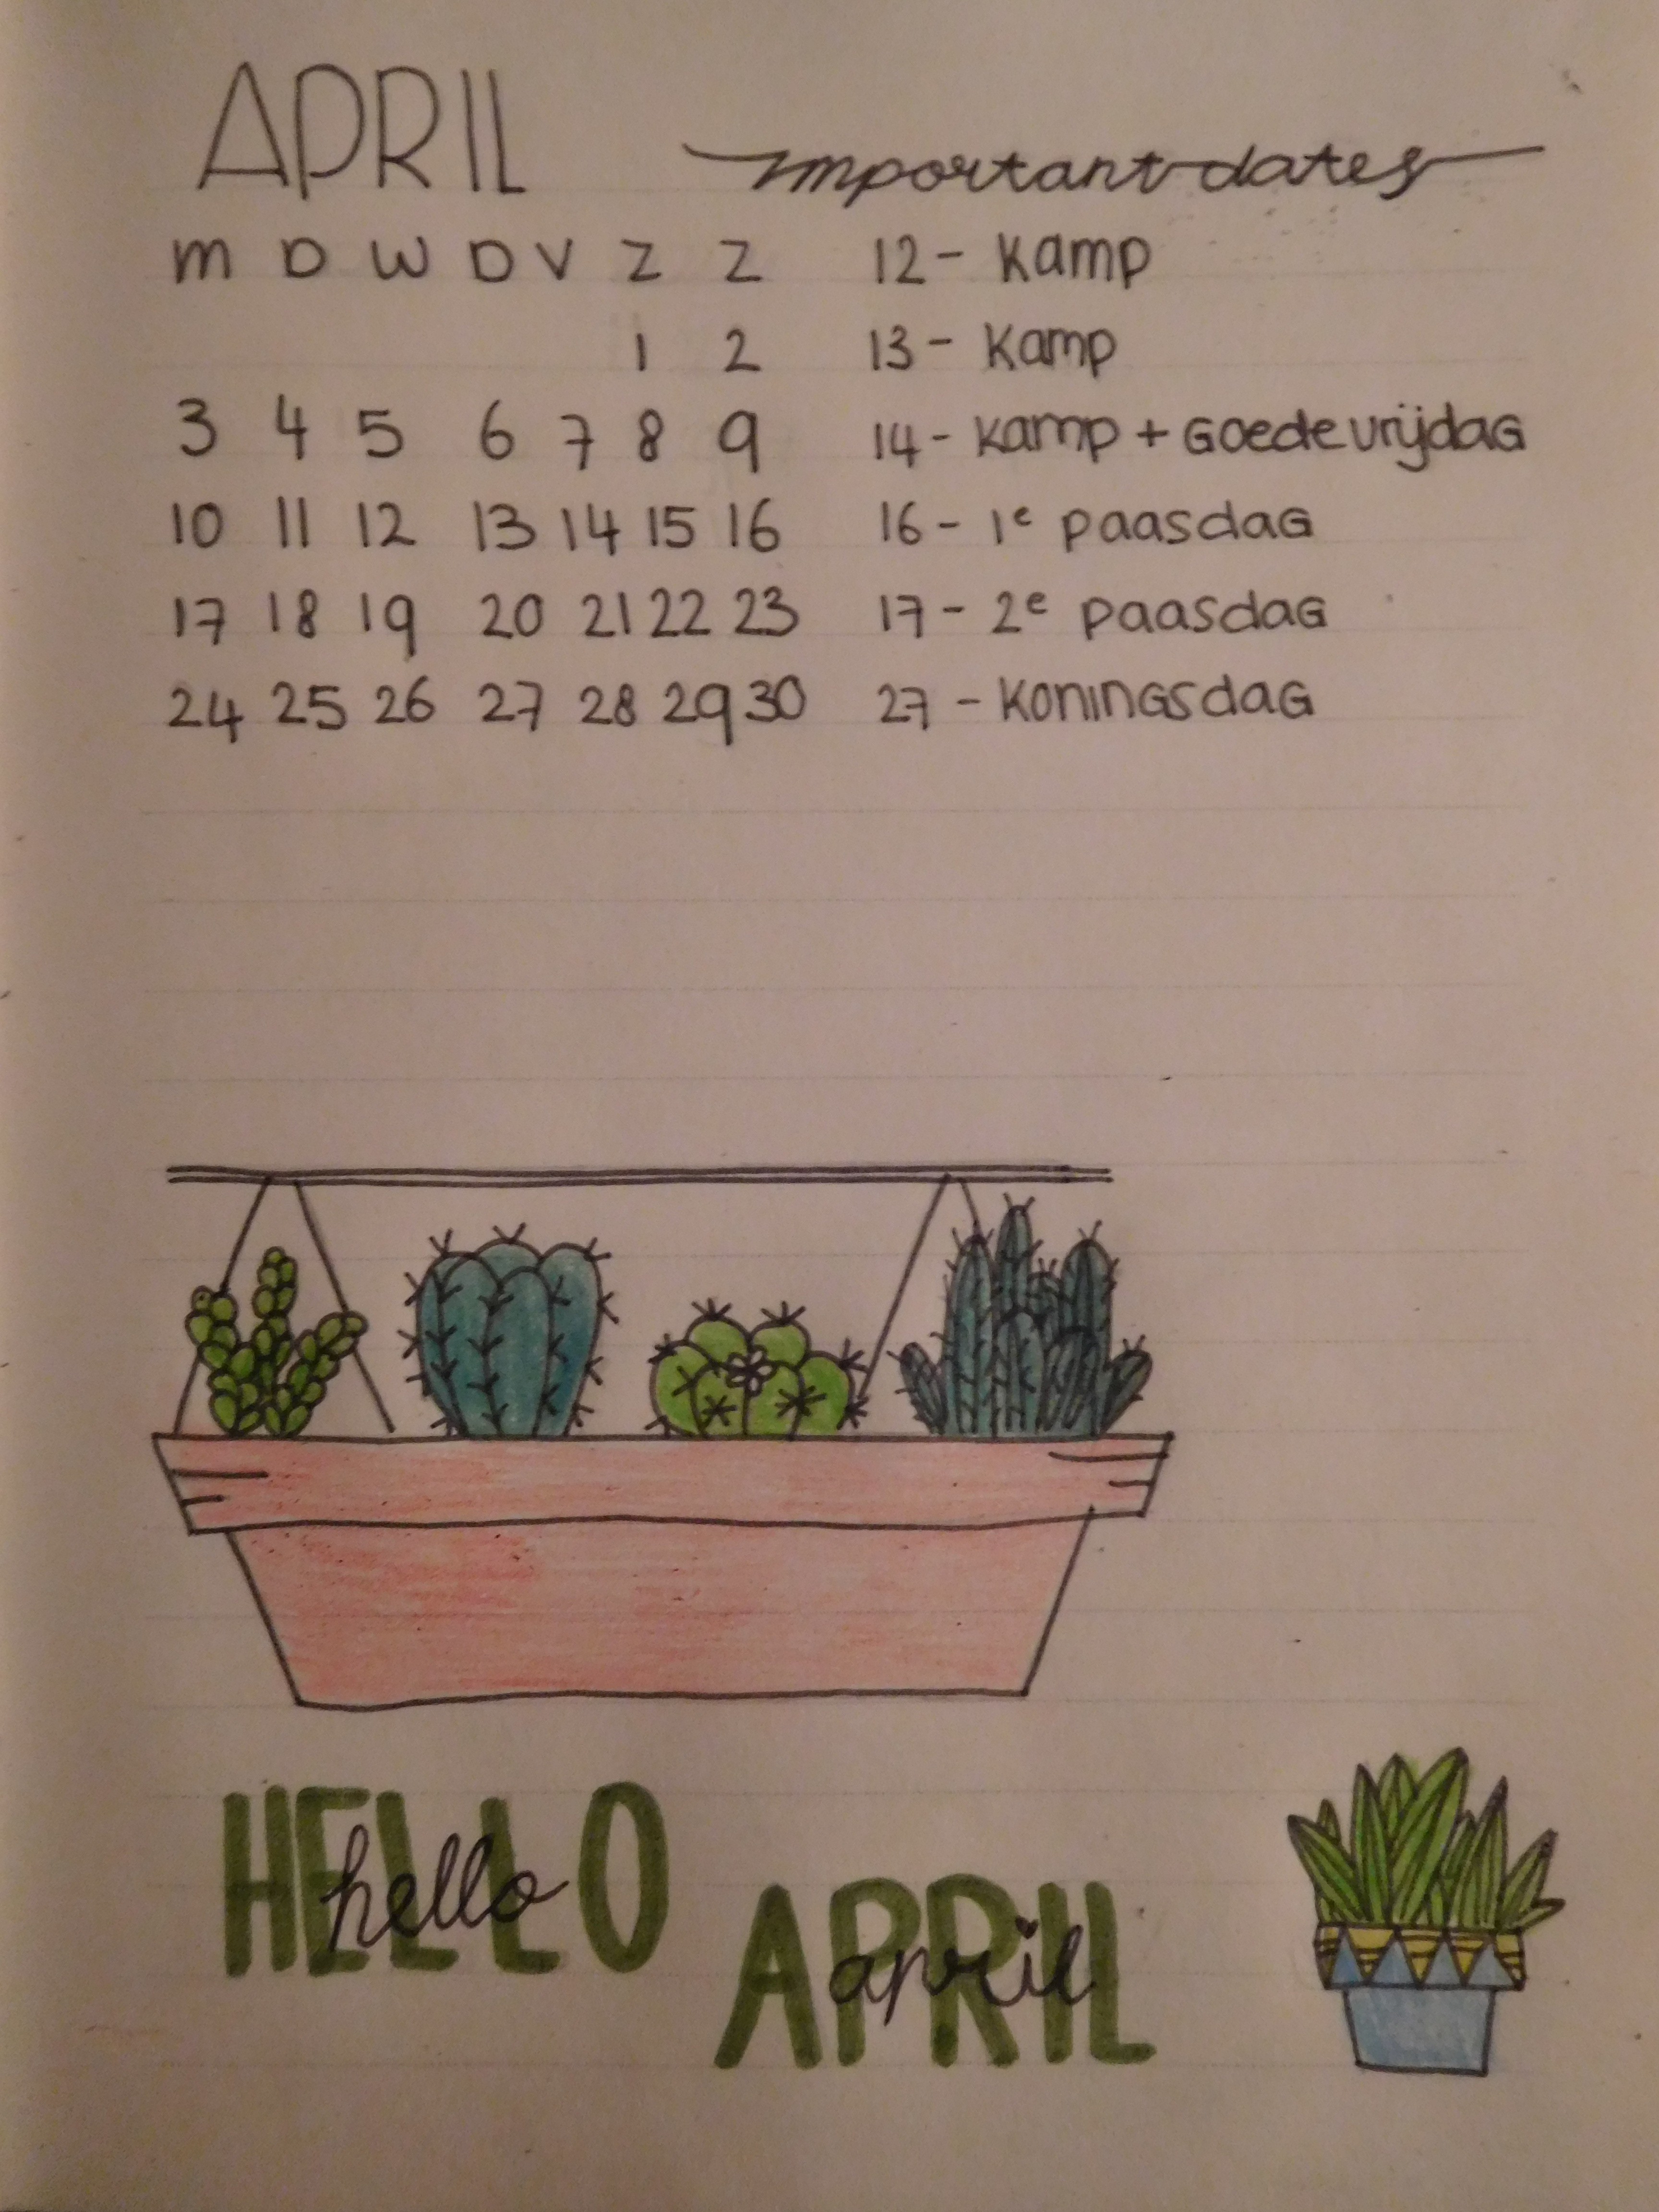 APRIL
important dates
M D W D V Z Z
1 2
3 4 5 6 7 8 9
10 11 12 13 14 15 16
17 18 19 20 21 22 23
24 25 26 27 28 29 30
12 - Kamp
13 - Kamp
14 - Kamp + Goede vrijdag
16 - 1e paasdag
17 - 2e paasdag
27 - Koningsdag
HELLO
hello
APRIL
april